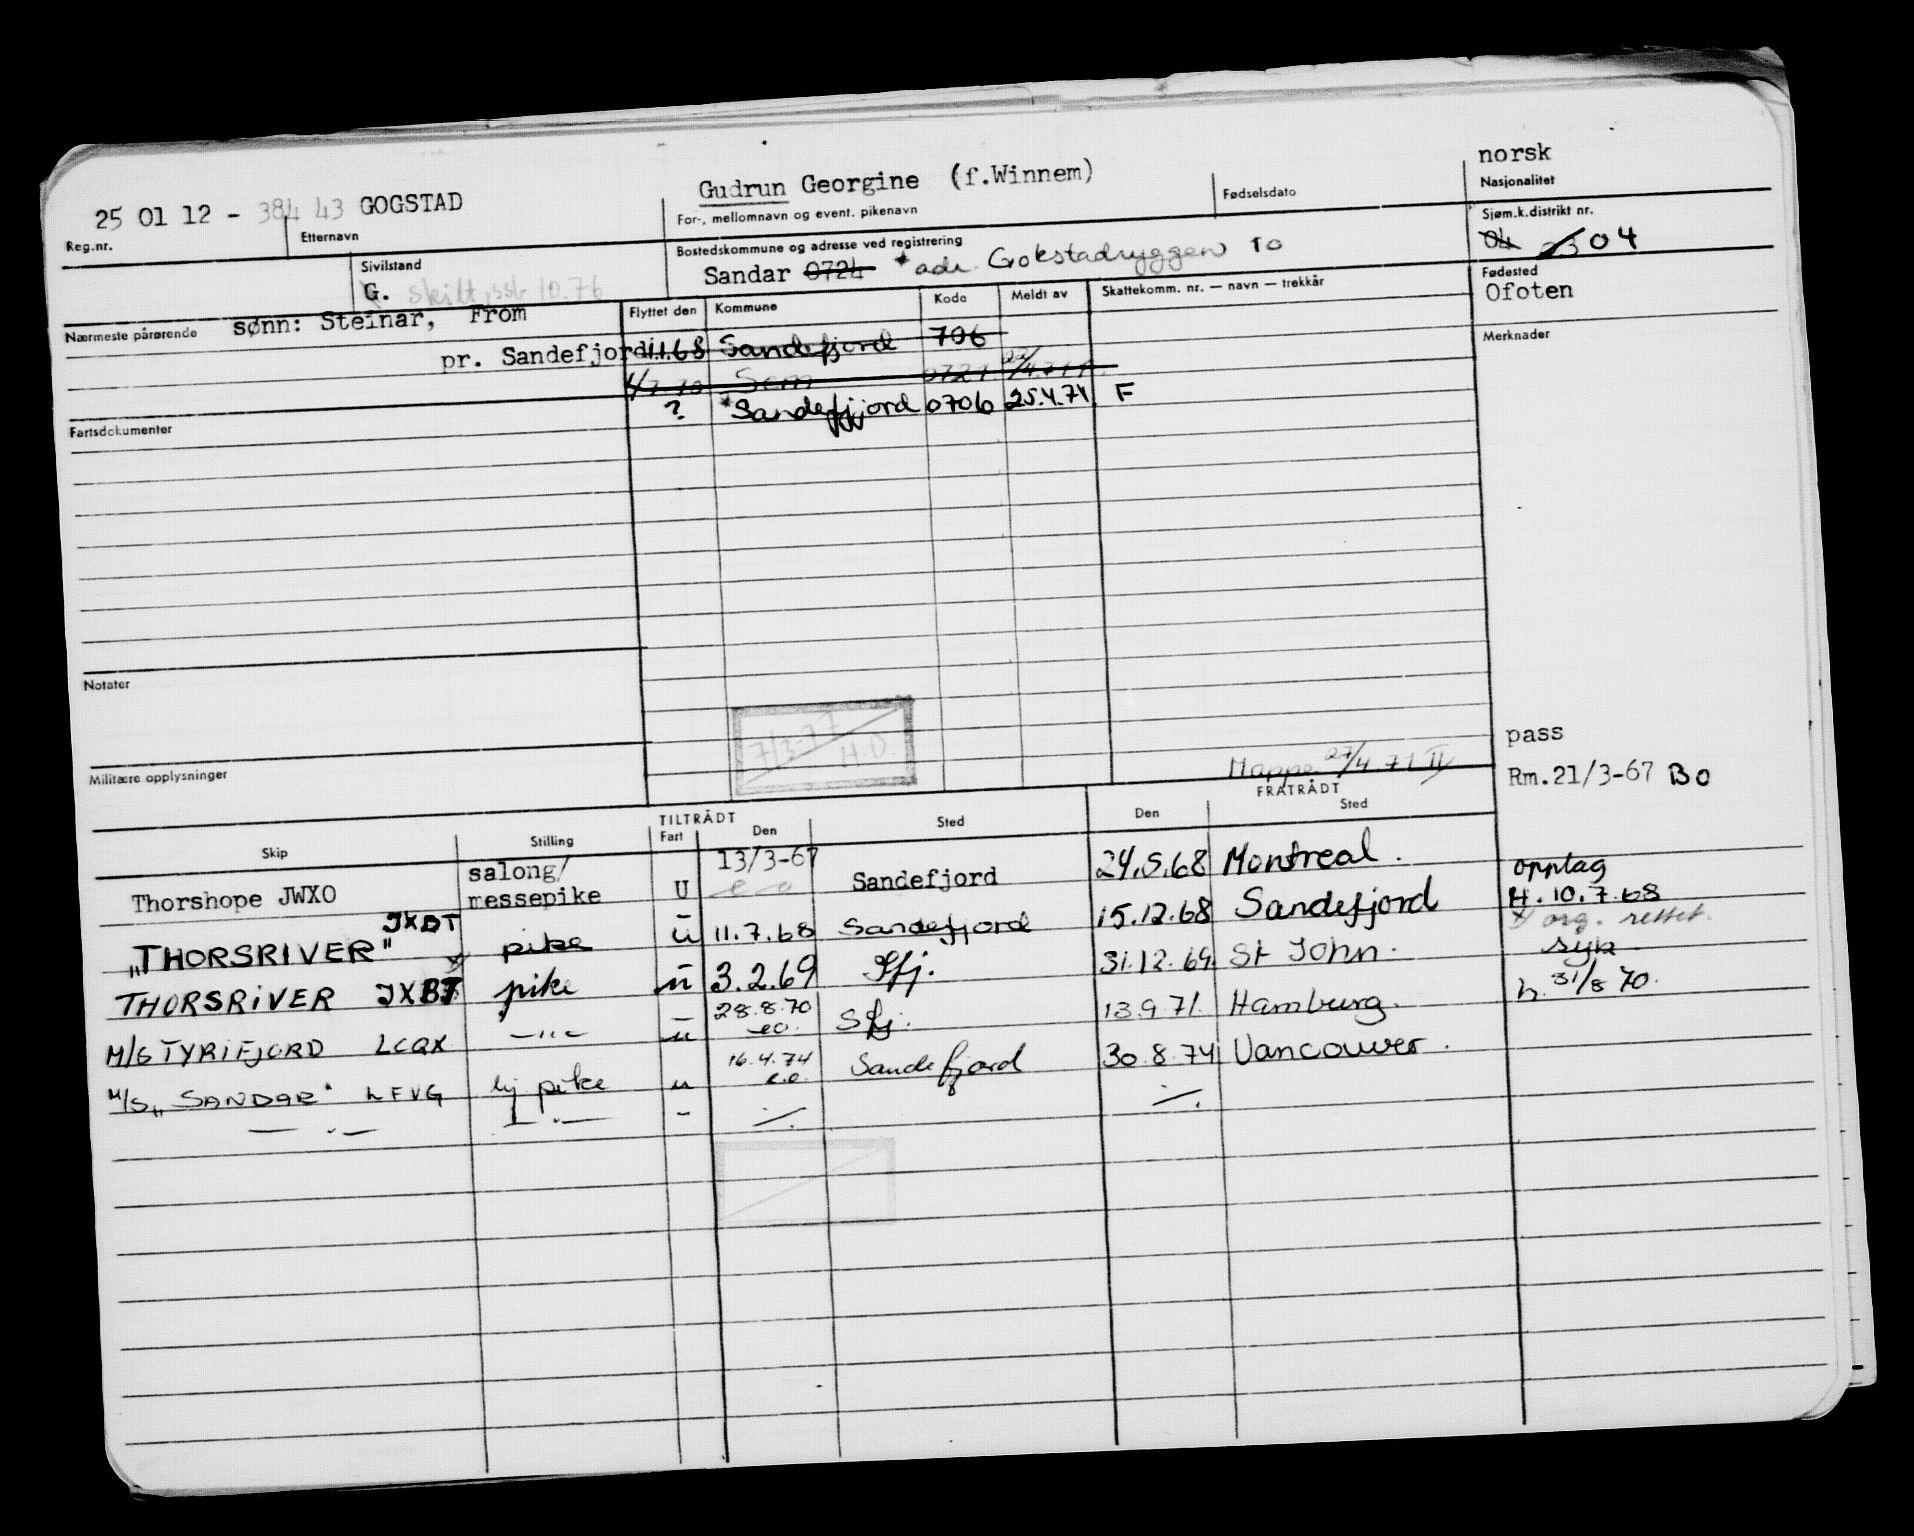 norsk
Gudrun Georgine (f.Winnem)
Fødselsdato
Nasjonalitet
25 01 12 - 384 43 GOGSTAD
For-, mellomnavn og event. pikenavn
Sjøm.k.distrikt nr.
Reg.nr.
Etternavn
Bostedskommune og adresse ved registrering
04 04
Sivilstand
Sandar 0724 * adr. Gokstadryggen 10
Fødested
G. skilt, ssb 10.76
Ofoten
Nærmeste pårørende sønn: Steinar, From
Flyttet den Kommune Kode Meldt av Skattekomm. nr. — navn — trekkår
Merknader
pr. Sandefjord
1.1.68 Sandefjord 706
Sem 0721
? * Sandefjord 0706 25.4.74 F
Fartsdokumenter
Notater
7/3-77
H.D.
pass
Mappe 27/4.71
Militære opplysninger
Rm.21/3-67 BO
TILTRÅDT
FRATRÅDT
Skip Stilling Fart Den Sted Den Sted
Thorshope JWXO salong/ messepike U 13/3-67 eo Sandefjord 24.5.68 Montreal.
opptag
H. 10.7.68
„THORSRIVER" JXBT pike u 11.7.68 Sandefjord 15.12.68 Sandefjord
x org. rettet.
THORSRIVER JXBT pike u 3.2.69 Sfj. 31.12.69 St John.
syk.
M/S TYRIFJORD LCQX —"— u 28.8.70 eo. Sfj. 13.9.71. Hamburg.
h. 31/8 70.
M/S „SANDAR" LFVG hj pike u 16.4.74 e.o. Sandefjord 30.8.74 Vancouver.
— . — — . — - /. /.